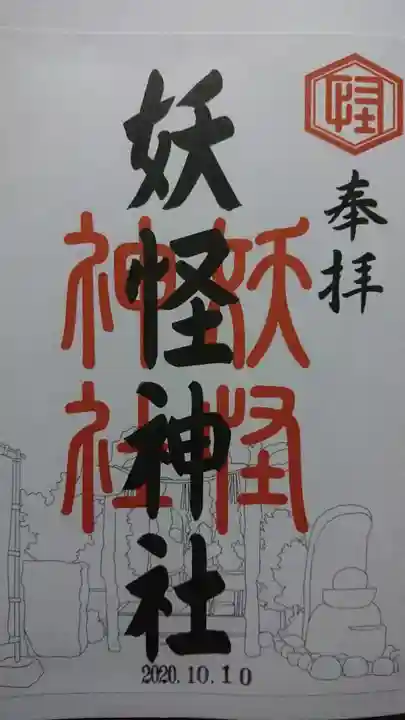 怪
奉拝
妖怪神社
妖怪
神社
2020.10.10